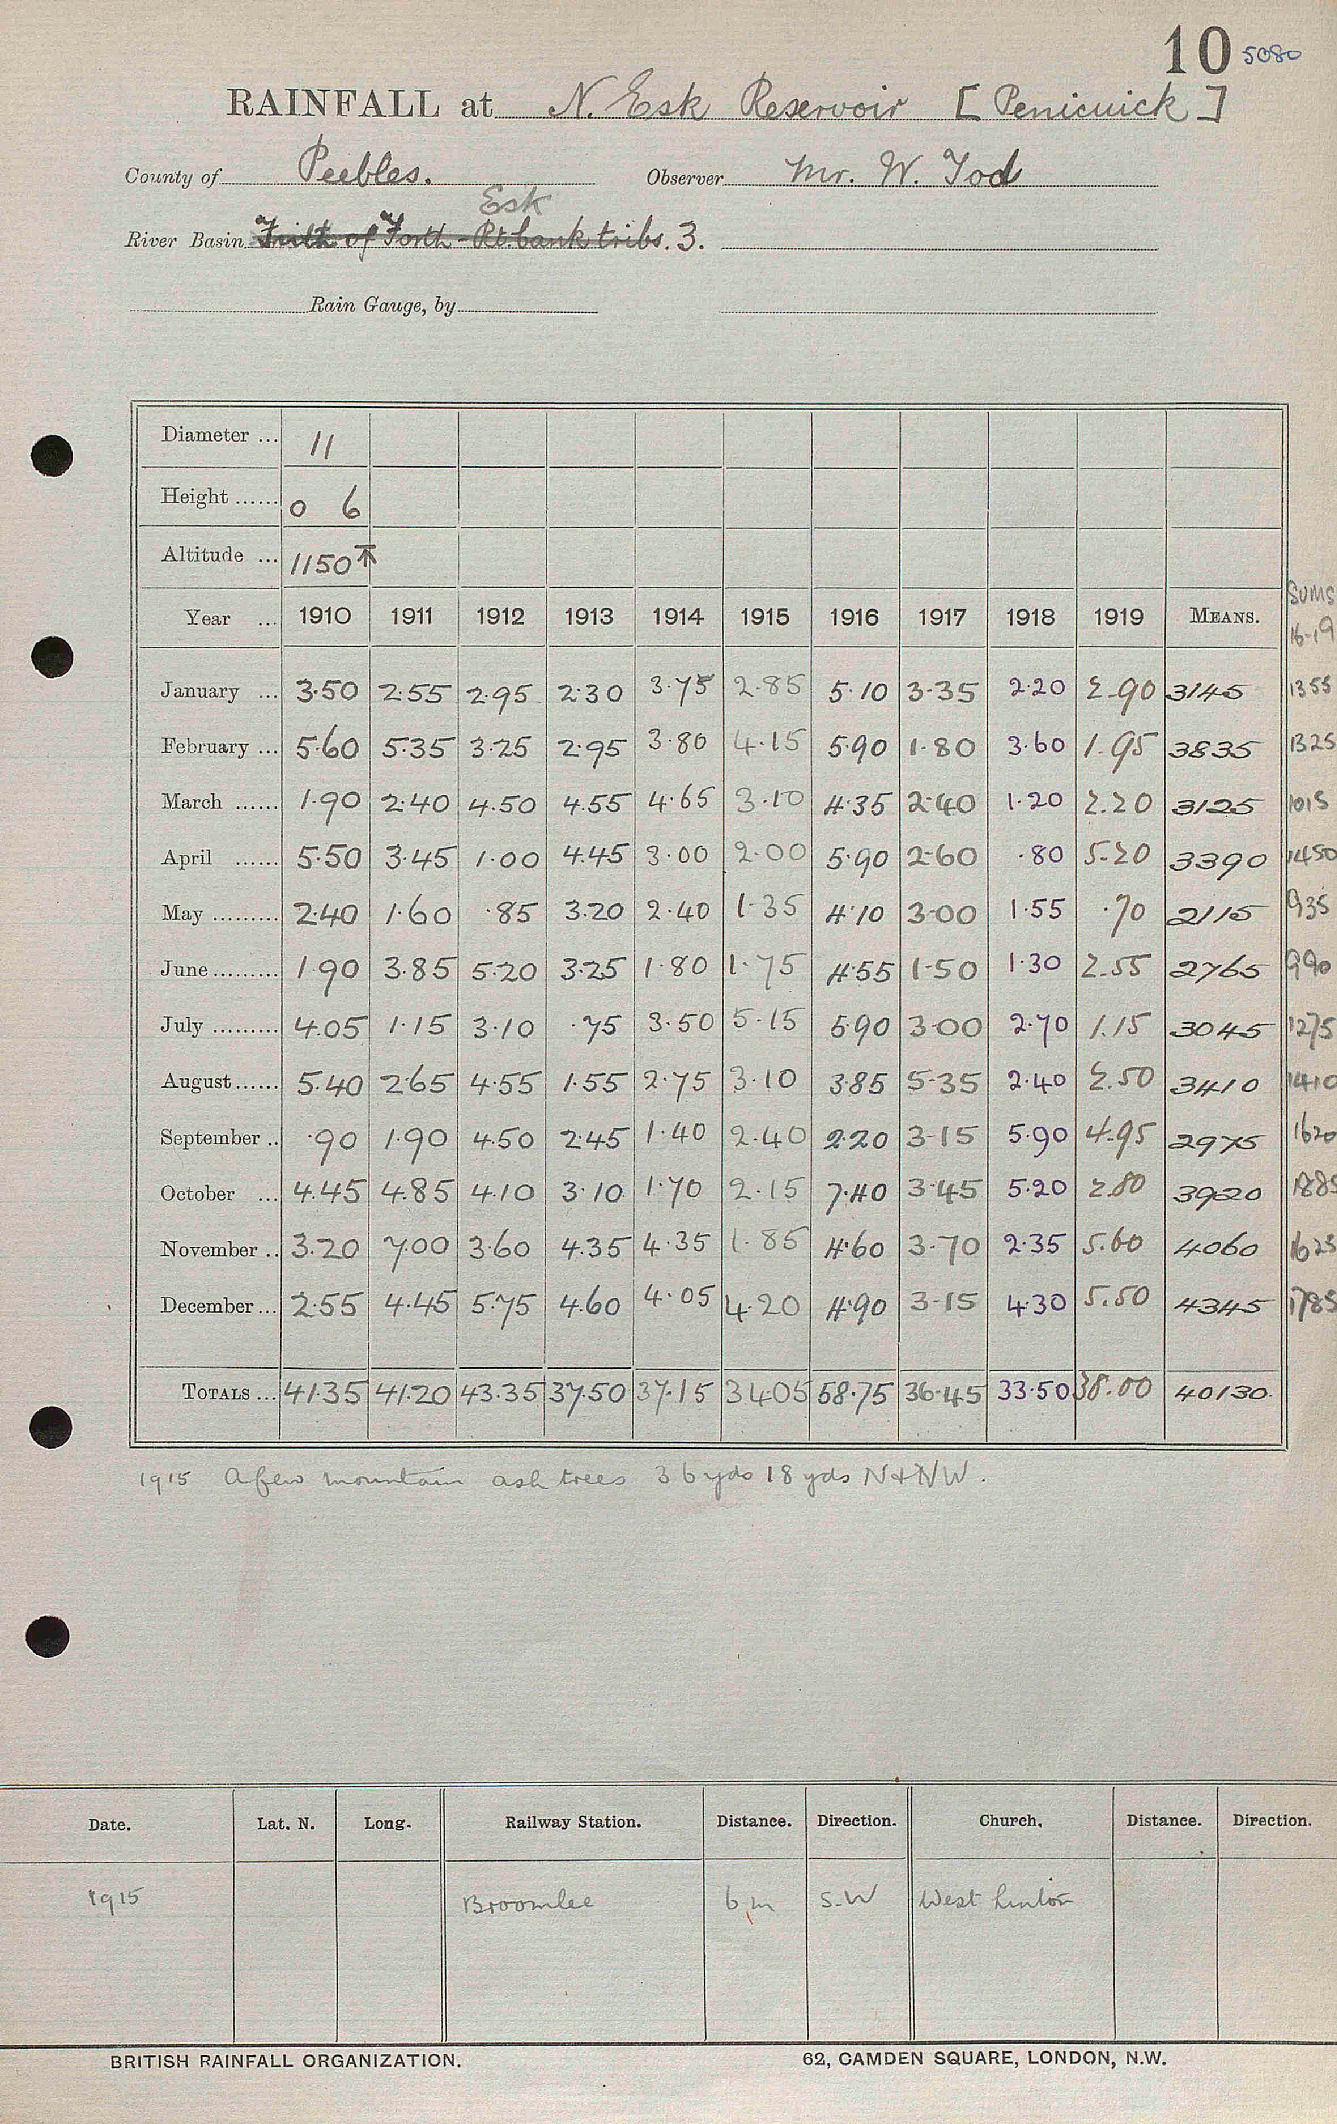 10 5080
RAINFALL at N. Esk Reservoir [Penicuick]
County of Peebles. Observer Mr. W. Tod
Esk
River Basin Frith of Forth - Rt. bank tribs. 3.
Rain Gauge, by
Diameter ... 11
Height ...... 0 6
Altitude ... 1150
Sums
Year ... 1910 1911 1912 1913 1914 1915 1916 1917 1918 1919 MEANS. 16-19
January ... 3.50 2.55 2.95 2.30 3.75 2.85 5.10 3.35 2.20 2.90 3145 1355
February ... 5.60 5.35 3.25 2.95 3.80 4.15 5.90 1.80 3.60 1.95 3835 1325
March ...... 1.90 2.40 4.50 4.55 4.65 3.10 4.35 2.40 1.20 2.20 3125 1015
April ...... 5.50 3.45 1.00 4.45 3.00 2.00 5.90 2.60 .80 5.20 3390 1450
May ......... 2.40 1.60 .85 3.20 2.40 1.35 4.10 3.00 1.55 .70 2115 935
June ......... 1.90 3.85 5.20 3.25 1.80 1.75 4.55 1.50 1.30 2.55 2765 990
July ......... 4.05 1.15 3.10 .75 3.50 5.15 5.90 3.00 2.70 1.15 3045 1275
August ...... 5.40 2.65 4.55 1.55 2.75 3.10 3.85 5.35 2.40 2.50 3410 1410
September .. .90 1.90 4.50 2.45 1.40 2.40 2.20 3.15 5.90 4.95 2975 1620
October ... 4.45 4.85 4.10 3.10 1.70 2.15 7.40 3.45 5.20 2.80 3920 1885
November .. 3.20 7.00 3.60 4.35 4.35 1.85 4.60 3.70 2.35 5.60 4060 1625
December ... 2.55 4.45 5.75 4.60 4.05 4.20 4.90 3.15 4.30 5.50 4345 1785
TOTALS ... 41.35 41.20 43.35 37.50 37.15 34.05 58.75 36.45 33.50 38.00 40130
1915 A few mountain ash trees 36 yds 18 yds N & NW.
Date. Lat. N. Long. Railway Station. Distance. Direction. Church. Distance. Direction.
1915 Broomlee 6 m S.W West Linton
BRITISH RAINFALL ORGANIZATION. 62, CAMDEN SQUARE, LONDON, N.W.